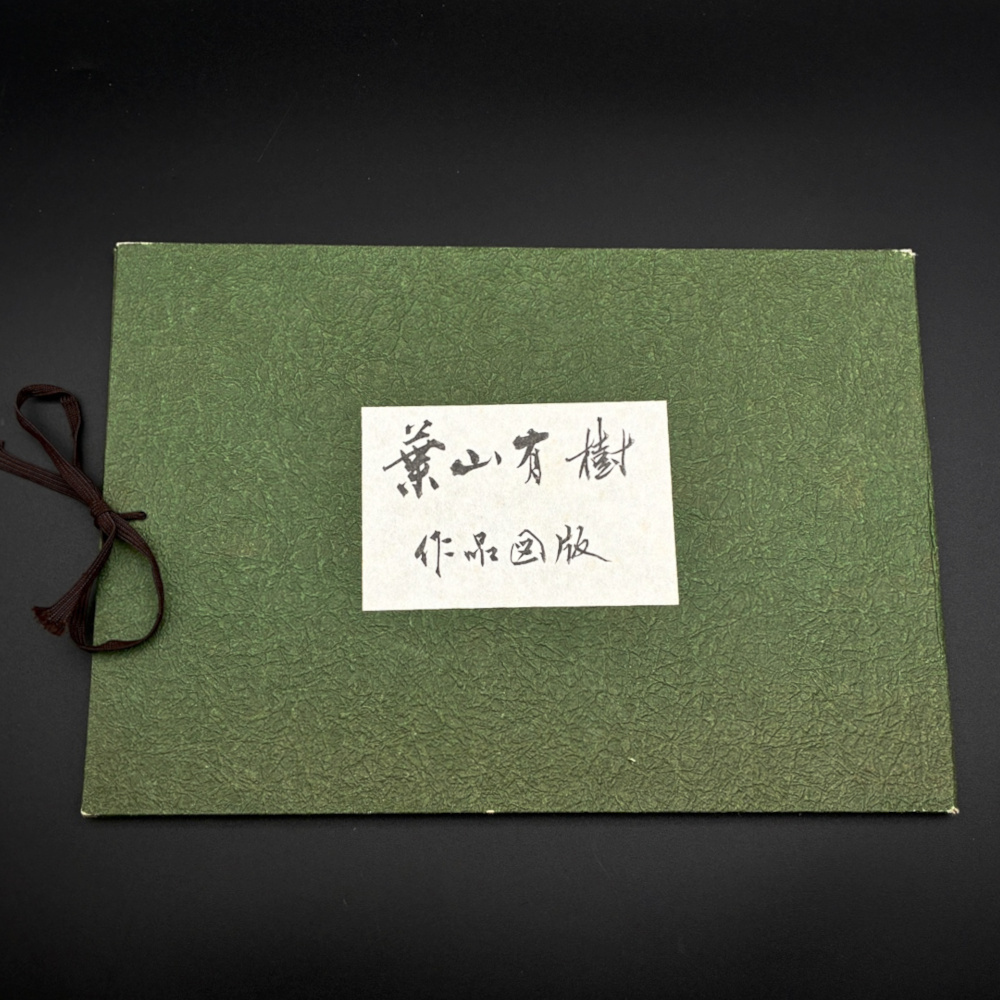 葉山有樹
作品図版